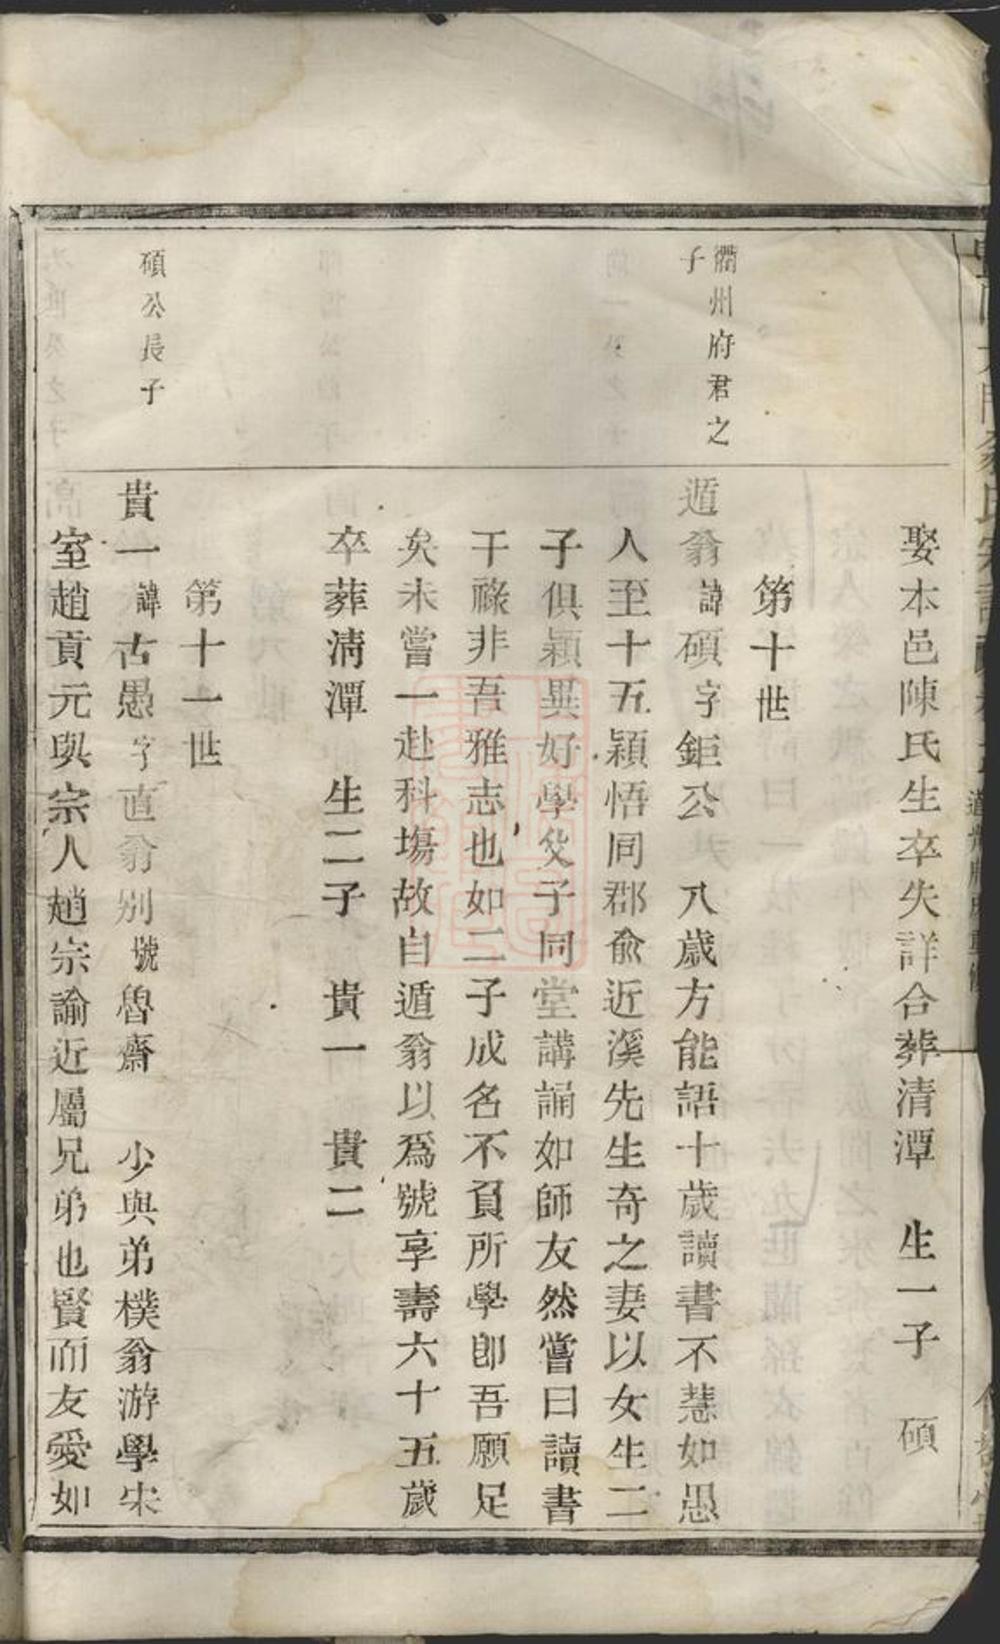 娶本邑陳氏生卒失詳合葬清潭　生一子　碩
第十世
衢州府君之子
遁翁諱碩字鉅公　八歲方能語十歲讀書不慧如愚
人至十五穎悟同郡俞近溪先生奇之妻以女生二
子俱穎異好學父子同堂講誦如師友然嘗曰讀書
干祿非吾雅志也如二子成名不負所學卽吾願足
矣未嘗一赴科塲故自遁翁以爲號享壽六十五歲
卒葬淸潭　生二子　貴一　貴二
第十一世
碩公長子
貴一諱古愚字直翁别號魯齋　少與弟樸翁游學宋
室趙貢元與宗人趙宗諭近屬兄弟也賢而友愛如